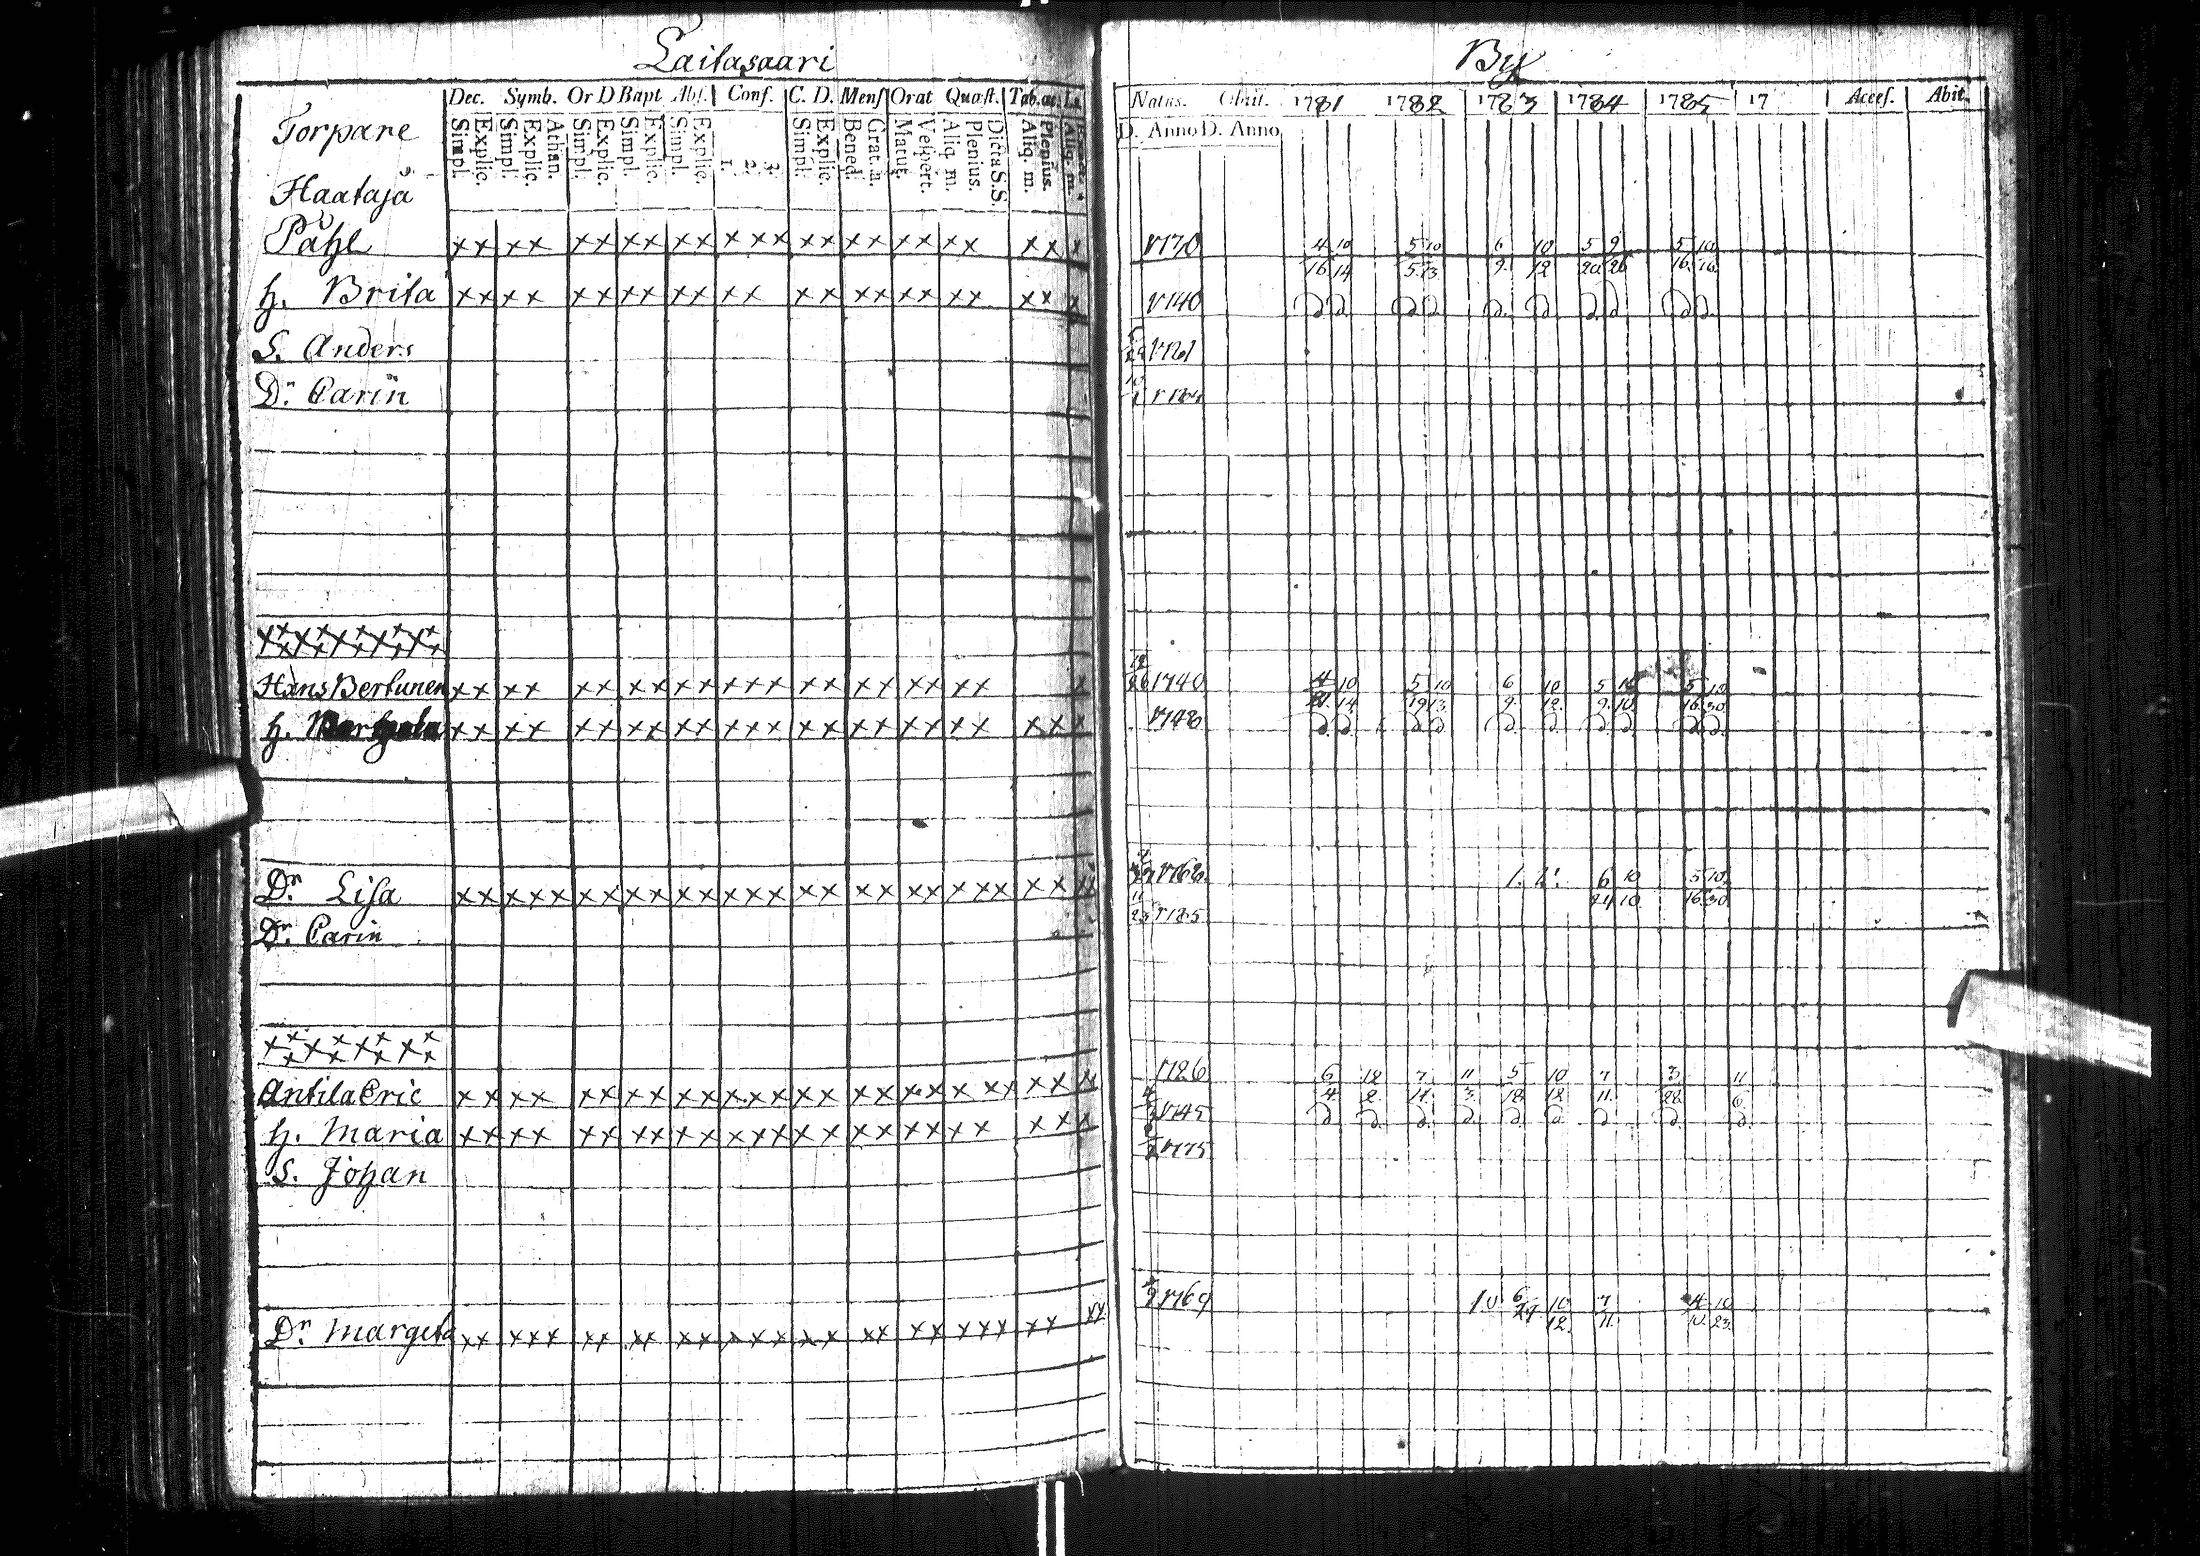 Lailasaari By
Dec. Symb. Or D Bapt Abs. Conf. C. D. Mens Orat Quæst. Tab. œc.
Simpl. Explic. Simpl. Explic. Athan. Simpl. Explic. Simpl. Explic. Simpl. Explic. 1. 2. 3. Simpl. Explic. Bened. Grat. a. Matut. Vespert. Aliq. m. Plenius. Dicta S.S. Aliq. m. Plenius. Aliq. m.
Natus. Obiit. 1781 1782 1783 1784 1785 17 Access. Abit.
D. Anno D. Anno
Torpare
Haataja
Påhl xx xx xx xx xx x xx xx xx xx xx xx x 4 10 5 10 6 10 5 9 5 10
16 14 5 13 9 12 20 26 16 16
h. Brita xx xx xx xx xx xx xx xx xx xx xx x 1740
S. Anders
Dr. Carin
Hans Bertunen xx xx xx xx xx xxx xx xx xx xx x 1740 4 10 5 10 6 10 5 10 5 10
14 19 13 9 12 9 10 16 30
h. xx xx xx xx xx xxx xx xx xx xx xx x 1748
Dr. Lisa xx xxx xx xx xx xxx xx xx xx xxx xx xx 6 10 5 10
24 10 16 30
Dr. Carin
Antila Eric xx xx xx xx xx xxx xx xx xx x xx xx 1726 6 12 7 11 5 10 7 3 11
4 2 14 3 18 12 11 28 6
h. Maria xx xx xx xx xx xxx xx xx xx xx xx x 1745
S. Johan 1775
Dr. Margeta xx xxx xx xx xx xxx xx xx xx xxx xx xx 1769 6 10 7 4 10
29 12 11 10 23